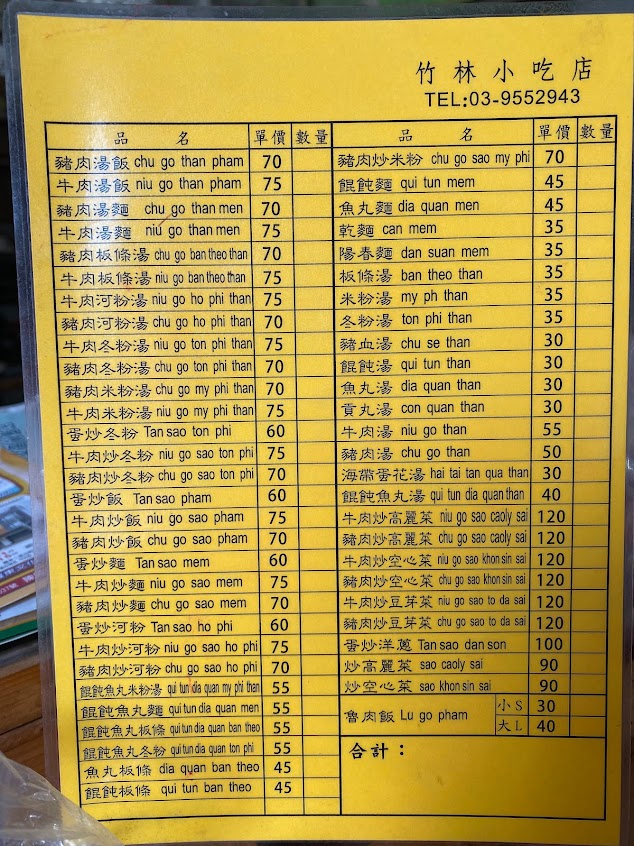 竹林小吃店
TEL:03-9552943
品名 單價 數量
豬肉湯飯 chu go than pham 70
牛肉湯飯 niu go than pham 75
豬肉湯麵 chu go than men 70
牛肉湯麵 niu go than men 75
豬肉板條湯 chu go ban theo than 70
牛肉板條湯 niu go ban theo than 75
牛肉河粉湯 niu go ho phi than 75
豬肉河粉湯 chu go ho phi than 70
牛肉冬粉湯 niu go ton phi than 75
豬肉冬粉湯 chu go ton phi than 70
豬肉米粉湯 chu go my phi than 70
牛肉米粉湯 niu go my phi than 75
蛋炒冬粉 Tan sao ton phi 60
牛肉炒冬粉 niu go sao ton phi 75
豬肉炒冬粉 chu go sao ton phi 70
蛋炒飯 Tan sao pham 60
牛肉炒飯 niu go sao pham 75
豬肉炒飯 chu go sao pham 70
蛋炒麵 Tan sao mem 60
牛肉炒麵 niu go sao mem 75
豬肉炒麵 chu go sao mem 70
蛋炒河粉 Tan sao ho phi 60
牛肉炒河粉 niu go sao ho phi 75
豬肉炒河粉 chu go sao ho phi 70
餛飩魚丸米粉湯 qui tun dia quan my phi than 55
餛飩魚丸麵 qui tun dia quan men 55
餛飩魚丸板條 qui tun dia quan ban theo 55
餛飩魚丸冬粉 qui tun dia quan ton phi 55
魚丸板條 dia quan ban theo 45
餛飩板條 qui tun ban theo 45
品名 單價 數量
豬肉炒米粉 chu go sao my phi 70
餛飩麵 qui tun mem 45
魚丸麵 dia quan men 45
乾麵 can mem 35
陽春麵 dan suan mem 35
板條湯 ban theo than 35
米粉湯 my ph than 35
冬粉湯 ton phi than 35
豬血湯 chu se than 30
餛飩湯 qui tun than 30
魚丸湯 dia quan than 30
貢丸湯 con quan than 30
牛肉湯 niu go than 55
豬肉湯 chu go than 50
海帶蛋花湯 hai tai tan qua than 30
餛飩魚丸湯 qui tun dia quan than 40
牛肉炒高麗菜 niu go sao caoly sai 120
豬肉炒高麗菜 chu go sao caoly sai 120
牛肉炒空心菜 niu go sao khon sin sai 120
豬肉炒空心菜 chu go sao khon sin sai 120
牛肉炒豆芽菜 niu go sao to da sai 120
豬肉炒豆芽菜 chu go sao to da sai 120
蛋炒洋蔥 Tan sao dan son 100
炒高麗菜 sao caoly sai 90
炒空心菜 sao khon sin sai 90
魯肉飯 Lu go pham 小 S 30
大 L 40
合計：